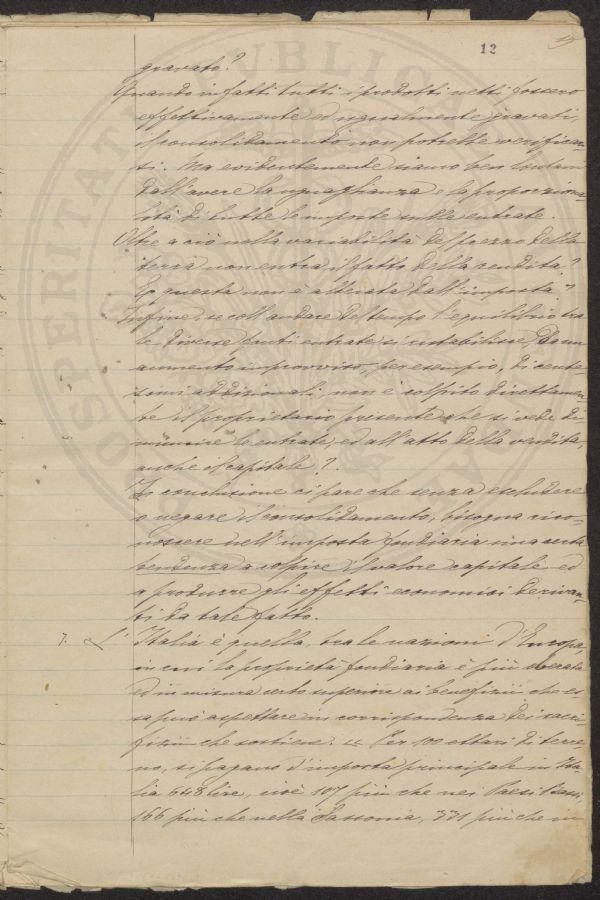 12
gravato?
Quando infatti tutti i prodotti netti fossero
effettivamente ed ugualmente gravati,
il consolidamento non potrebbe verificar-
si. Ma evidentemente siamo ben lontani
dall'avere l'uguaglianza e la proporziona-
lità di tutte le imposte sulle entrate.
Oltre a ciò nella variabilità del prezzo della
terra non entra il fatto della rendita?
E questa non è alterata dall'imposta?
Infine, se coll'andare del tempo l'equilibrio tra
le diverse fonti entrate si ristabilisce, da un
aumento improvviso, per esempio, di cente-
simi addizionali, non è colpito direttamen-
te il proprietario presente che si vede di-
minuire le entrate, ed all'atto della vendita,
anche il capitale?
In conclusione ci pare che senza escludere
o negare il consolidamento, bisogna rico-
noscere nell'imposta fondiaria una certa
tendenza a colpire il valore capitale ed
a produrre gli effetti economici derivan-
ti da tale fatto.
7. L'Italia è quella, tra le nazioni d'Europa,
in cui la proprietà fondiaria è più aggravata
ed in misura certo superiore ai benefizii che es-
sa può aspettare in corrispondenza dei sacri-
fizii che sostiene: « Per 100 ettari di terre-
no, si pagano d'imposta principale in Ita-
lia 648 lire, cioè 107 più che nei Paesi Bassi,
166 più che nella Sassonia, 331 più che in
PROSPERITATI PUBLICAE